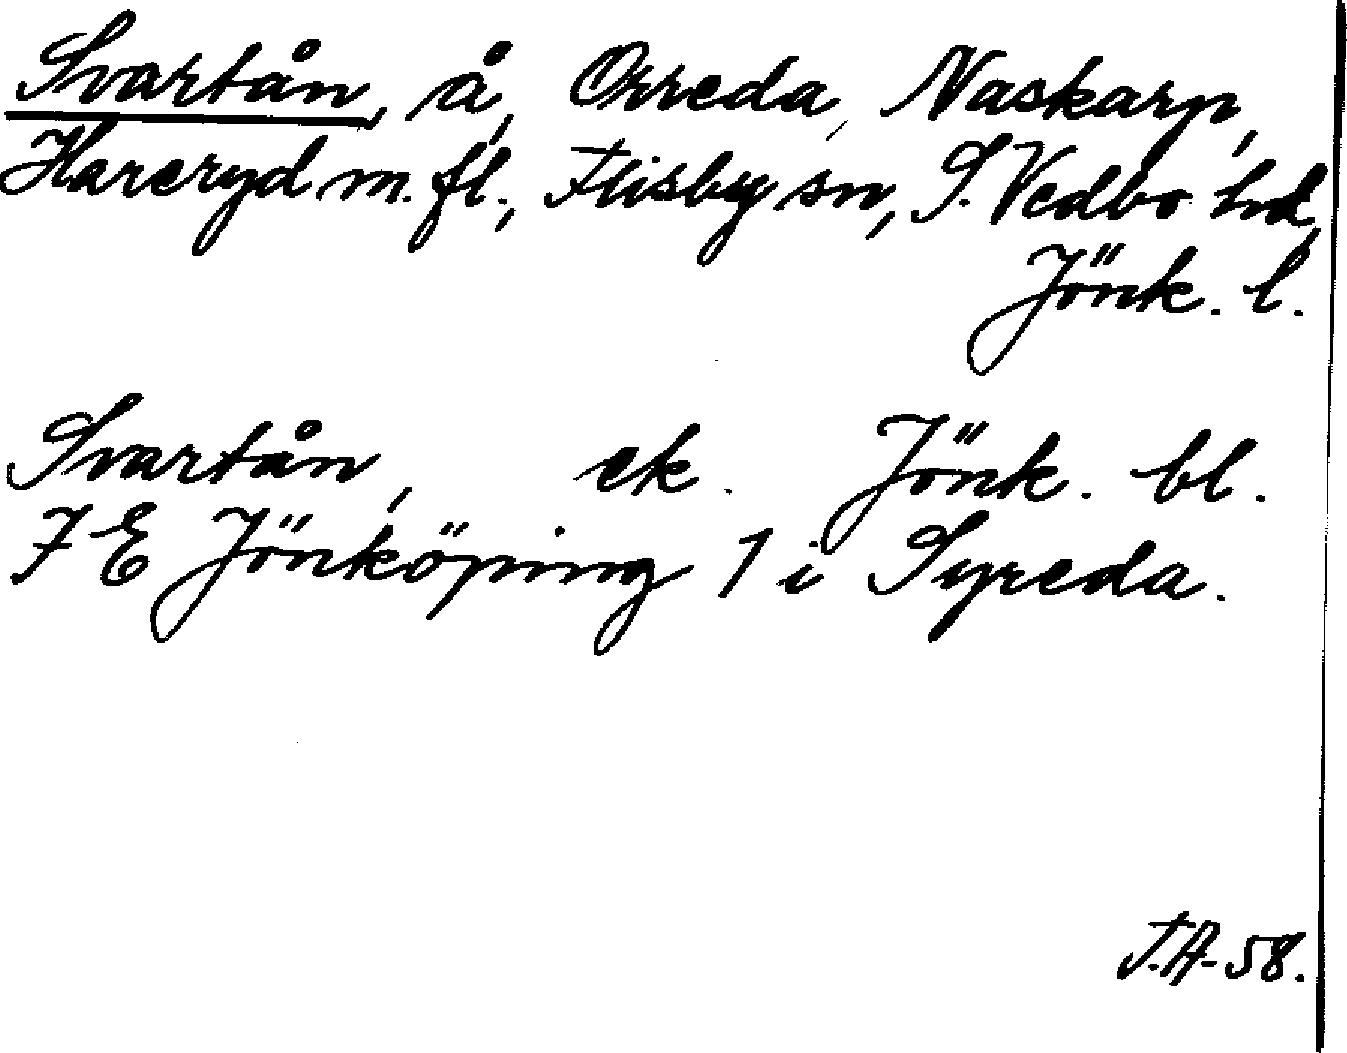 Svartån, å, Orreda, Naskarp,
Hareryd m.fl., Flisby sn, S. Vedbo hd,
Jönk. l.
Svartån, ek. Jönk. bl.
7 E Jönköping 1 i Syreda.
T.A-58.